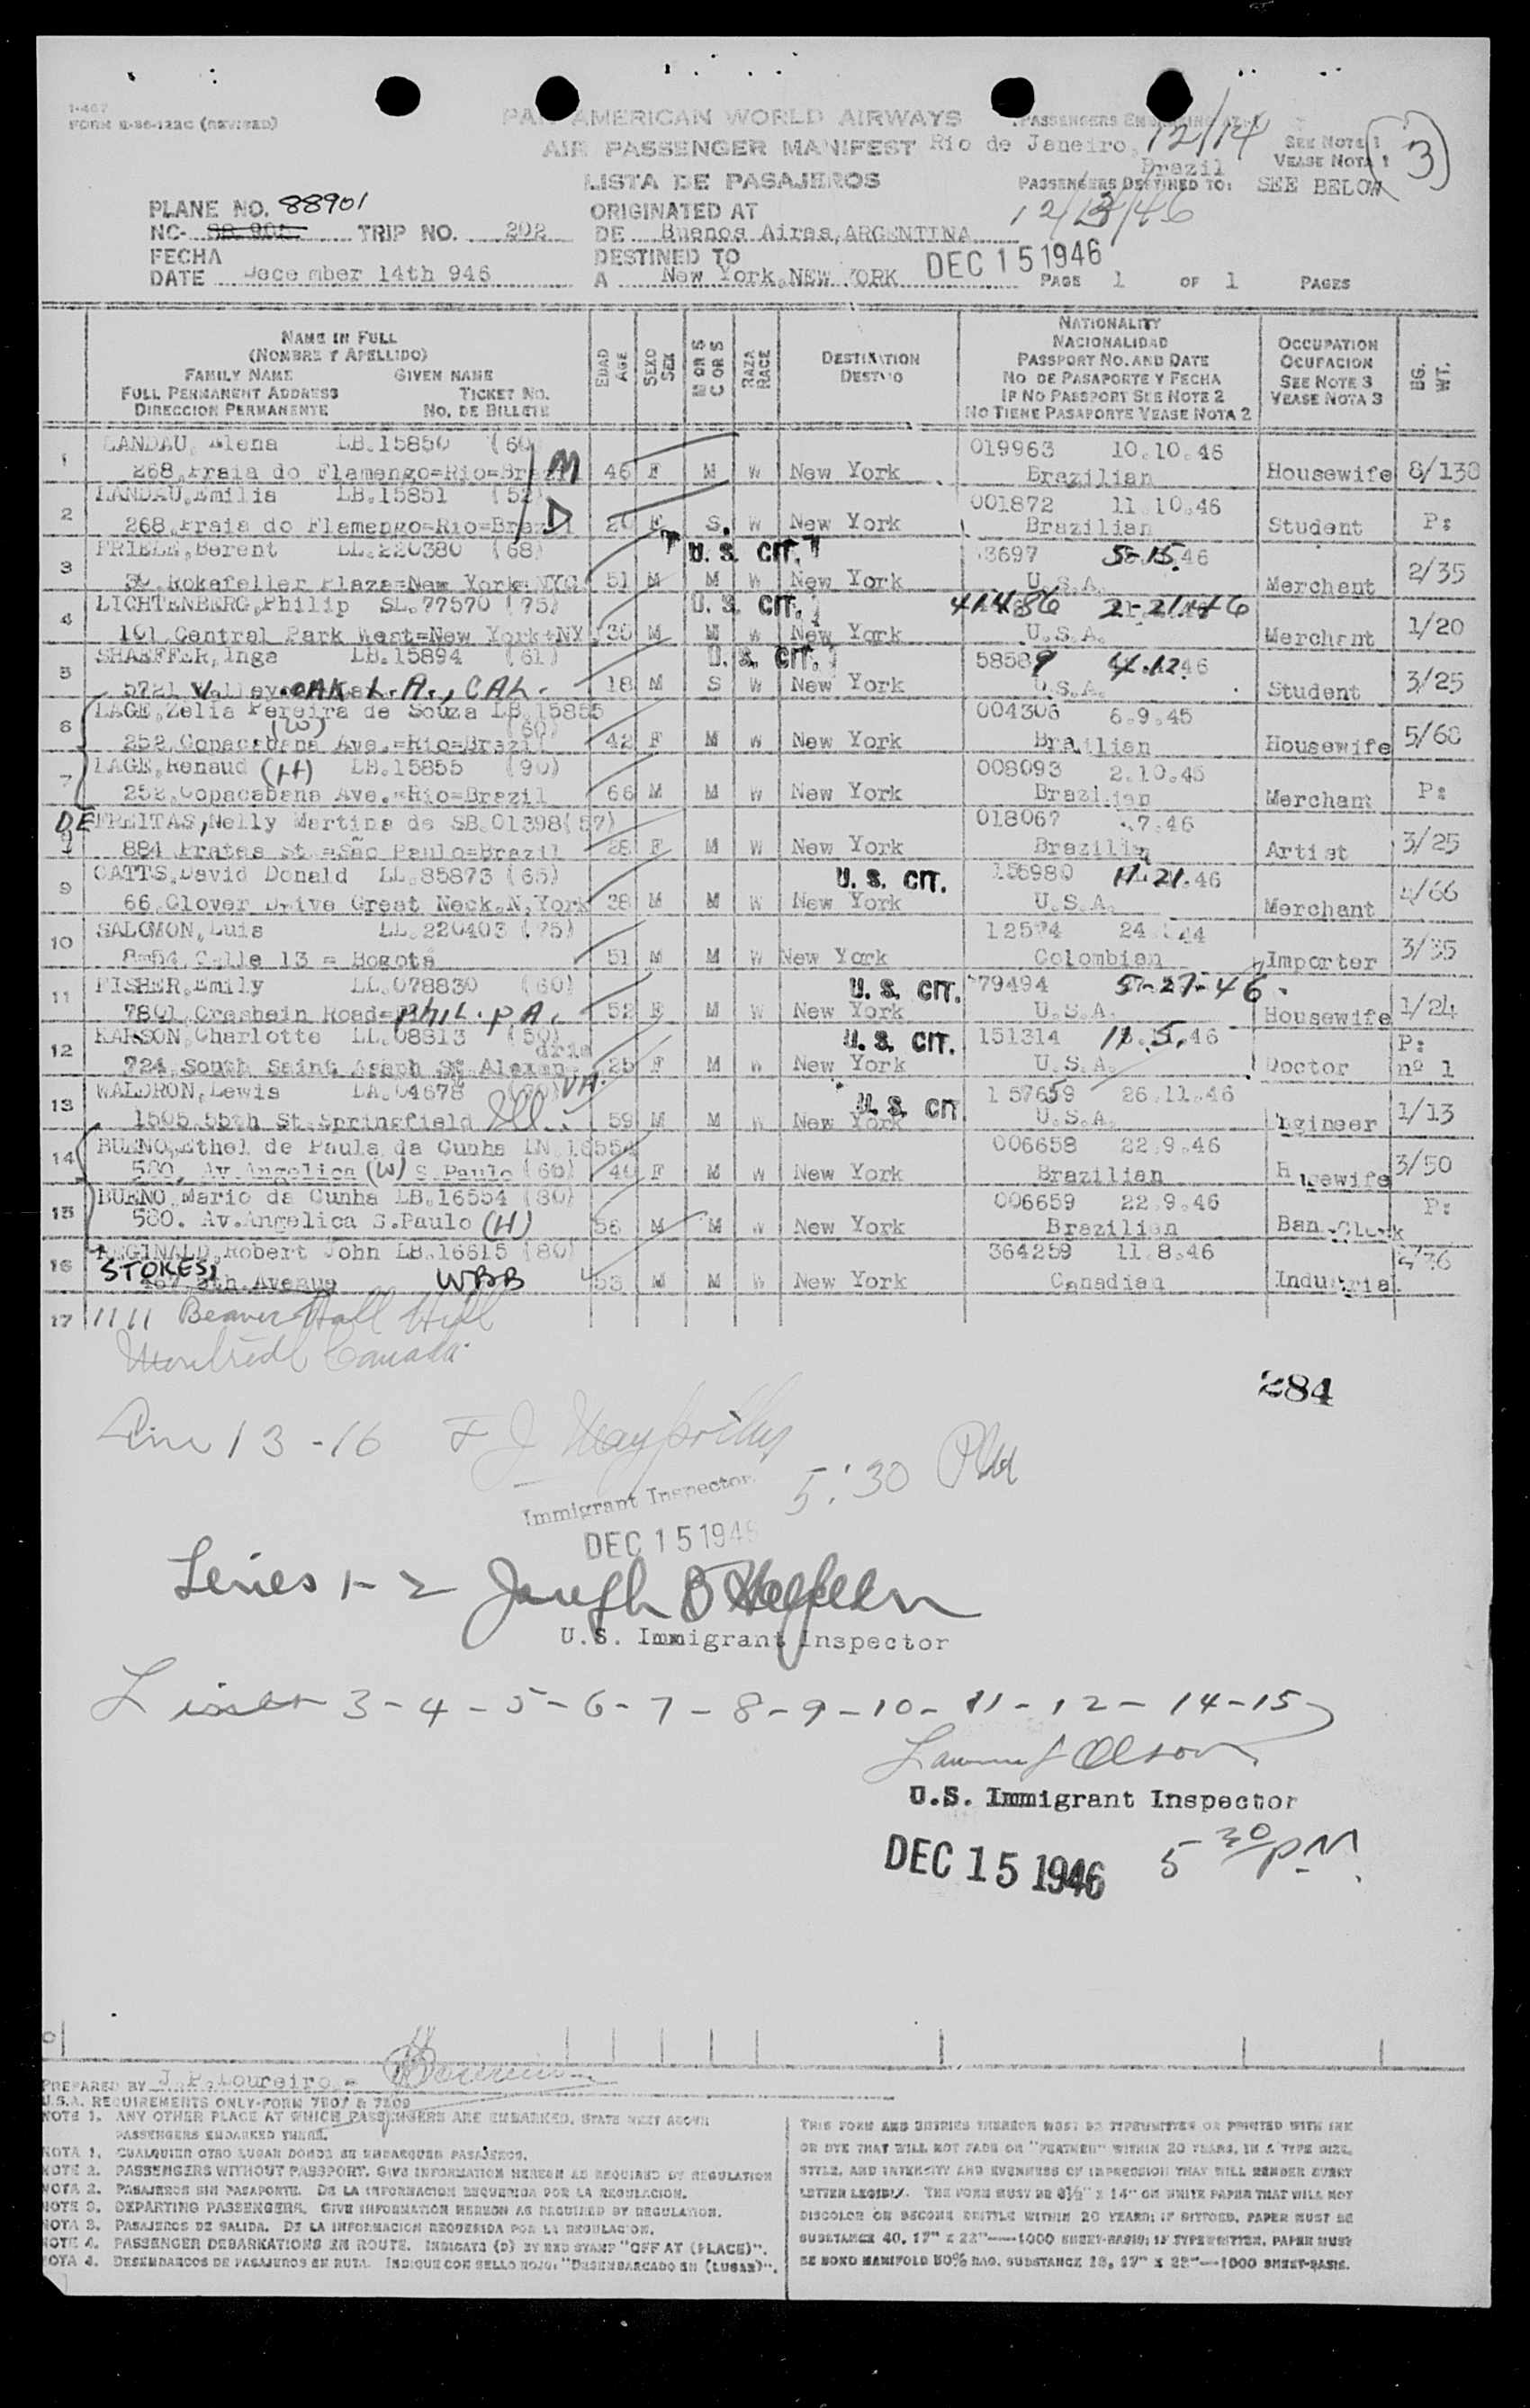 I-467
FORM B-86-122C (REVISED)
PAN AMERICAN WORLD AIRWAYS
AIR PASSENGER MANIFEST
LISTA DE PASAJEROS
Rio de Janeiro,
Brazil
12/14
SEE NOTE 1
VEASE NOTA 1
3
PASSENGERS DESTINED TO: SEE BELOW
PLANE NO. 88901
NC- TRIP NO. 202
ORIGINATED AT
DE Buenos Aires, ARGENTINA
FECHA
DATE December 14th 946
DESTINED TO
A New York, NEW YORK
DEC 15 1946
PAGE 1 OF 1 PAGES
NAME IN FULL
(NOMBRE Y APELLIDO)
FAMILY NAME GIVEN NAME
FULL PERMANENT ADDRESS TICKET NO.
DIRECCION PERMANENTE NO. DE BILLETE
EDAD AGE
SEXO SEX
M OR S
C OR S
RAZA RACE
DESTINATION
DESTINO
NATIONALITY
NACIONALIDAD
PASSPORT NO. AND DATE
NO DE PASAPORTE Y FECHA
IF NO PASSPORT SEE NOTE 2
NO TIENE PASAPORTE VEASE NOTA 2
OCCUPATION
OCUPACION
SEE NOTE 3
VEASE NOTA 3
BG. WT.
LANDAU, Elena LB.15850 (60) 019963 10.10.46
1 268, Praia do Flamengo=Rio=Brazil M 46 F M W New York Brazilian Housewife 8/130
LANDAU, Emilia LB.15851 (52) 001872 11.10.46
2 268, Praia do Flamengo=Rio=Brazil D 20 F S W New York Brazilian Student P:
FRIELE, Berent LL.220380 (68) U. S. CIT. 3697 5.15.46
3 30, Rokafeller Plaza=New York=NYC 51 M M W New York U.S.A. Merchant 2/35
LICHTENBERG, Philip SL.77570 (75) U. S. CIT. 41486 2-21-46
4 101, Central Park West=New York=NY 35 M M W New York U.S.A. Merchant 1/20
SHAEFFER, Inge LB.15894 (61) U. S. CIT. 58589 4.12.46
5 5721 Valley OAK L.A., CAL. 18 M S W New York U.S.A. Student 3/25
LAGE, Zelia Pereira de Souza LB.15855 (60) 004306 6.9.45
6 (W) 252, Copacabana Ave.=Rio=Brazil 42 F M W New York Brazilian Housewife 5/60
LAGE, Renaud (H) LB.15855 (90) 008093 2.10.45
7 252, Copacabana Ave.=Rio=Brazil 66 M M W New York Brazilian Merchant P:
DE FREITAS, Nelly Martins de SB.01398 (57) 018067 .7.46
8 884 Prates St.=São Paulo=Brazil 28 F M W New York Brazilian Artist 3/25
CATTS, David Donald LL.85873 (65) U. S. CIT. 156980 11.21.46
9 66, Clover Drive Great Neck, N, York 38 M M W New York U.S.A. Merchant 4/66
SALOMON, Luis LL.220403 (75) 12574
10 8=54, Calle 13 = Bogotá 51 M M W New York Colombian Importer 3/35
FISHER, Emily LL.078830 (60) U. S. CIT. 79494 5-27-46
11 7801, Cresheim Road= Phil. PA. 52 F M W New York U.S.A. Housewife 1/24
KARSON, Charlotte LL.08813 (50) U. S. CIT. 151314 11.5.46 P:
12 724, South Saint Asaph St Alexandria VA. 25 F M W New York U.S.A. Doctor nº 1
WALDRON, Lewis LA.04678 (70) U. S. CIT 157659 26.11.46
13 1505, 55th St. Springfield Ill. 59 M M W New York U.S.A. Engineer 1/13
BUENO, Ethel de Paula da Cunha LN.16554 006658 22.9.46
14 580, Av. Angelica (W) S. Paulo (60) 40 F M W New York Brazilian Housewife 3/50
BUENO, Mario da Cunha LB.16554 (80) 006659 22.9.46 P:
15 580. Av. Angelica S.Paulo (H) 56 M M W New York Brazilian Ban Clerk
REGINALD, Robert John LB.16615 (80) 364259 11.8.46
16 STOKES, 467, 5th. Avenue WBB 53 M M W New York Canadian Industrial
17 1111 Beaver Hall Hill
Montreal Canada.
284
Line 13-16
Immigrant Inspector
5:30 PM
DEC 15 1946
Lines 1-2
U.S. Immigrant Inspector
Lines 3-4-5-6-7-8-9-10-11-12-14-15
U.S. Immigrant Inspector
DEC 15 1946 5 30 PM.
PREPARED BY J.P. Loureiro.-
U.S.A. REQUIREMENTS ONLY-FORM 7507 & 7509
NOTE 1. ANY OTHER PLACE AT WHICH PASSENGERS ARE EMBARKED, STATE NEXT ABOVE
PASSENGERS EMBARKED THERE.
NOTA 1. CUALQUIER OTRO LUGAR DONDE SE EMBARQUEN PASAJEROS.
NOTE 2. PASSENGERS WITHOUT PASSPORT. GIVE INFORMATION HEREON AS REQUIRED BY REGULATION
NOTA 2. PASAJEROS SIN PASAPORTE. DE LA INFORMACION REQUERIDA POR LA REGULACION.
NOTE 3. DEPARTING PASSENGERS. GIVE INFORMATION HEREON AS REQUIRED BY REGULATION.
NOTA 3. PASAJEROS DE SALIDA. DE LA INFORMACION REQUERIDA POR LA REGULACION.
NOTE 4. PASSENGER DEBARKATIONS EN ROUTE. INDICATE (D) BY RED STAMP "OFF AT (PLACE)".
NOTA 4. DESEMBARCOS DE PASAJEROS EN RUTA. INDIQUE CON SELLO ROJO: "DESEMBARCADO EN (LUGAR)".
THIS FORM AND ENTRIES THEREON MUST BE TYPEWRITTEN OR PRINTED WITH INK
OR DYE THAT WILL NOT FADE OR "FEATHER" WITHIN 20 YEARS, IN A TYPE SIZE,
STYLE, AND INTENSITY AND EVENNESS OF IMPRESSION THAT WILL RENDER EVERY
LETTER LEGIBLE. THE FORM MUST BE 8½" x 14" ON WHITE PAPER THAT WILL NOT
DISCOLOR OR BECOME BRITTLE WITHIN 20 YEARS; IF DITTOED, PAPER MUST BE
SUBSTANCE 40, 17" x 22"—1000 SHEET-BASIS; IF TYPEWRITTEN, PAPER MUST
BE BOND MANIFOLD 50% RAG, SUBSTANCE 18, 17" x 22"—1000 SHEET-BASIS.